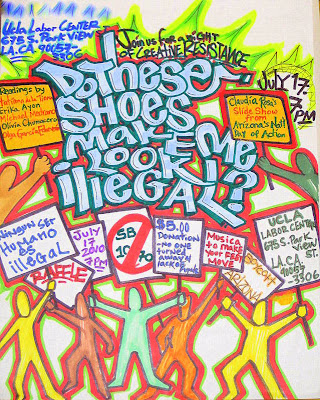 UCLA LABOR CENTER-
675 S. PARK VIEW
LA. CA. 90057-
3306
Join us for a NIGHT
of CREATIVE RESISTANCE
JULY 17,
7
PM
Readings by
Tatiana de la Tierra
Erika Ayon
Michael Medrano
Olivia Chumacero
Olga García Echeverría
Do These
SHOES
MAKE
LOOK ME
illEGAL?
Claudia Rosa's
Slide Show
from
Arizona's Natl
Day of Action
Ningun SER
HUMANO
ES
illEGAL
RAFFLE
JULY
17
2010
7PM
SB
1070
$5.00
DONATION
-NO ONE
turned
away 4
lack of
FUNDS
MUSICA
to make
YOUR FEET
MOVE
BOYCOTT
ARIZONA
UCLA
LABOR CENTER
675 S. PARK
VIEW
ST.
LA. CA
90057
-3306